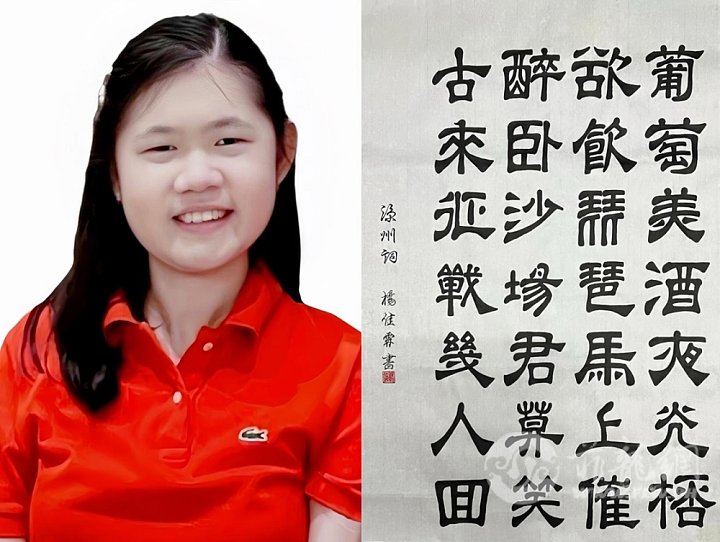 葡萄美酒夜光桮
欲飲琵琶馬上催
醉臥沙場君莫笑
古來征戰幾人回
涼州詞 楊佳霖書